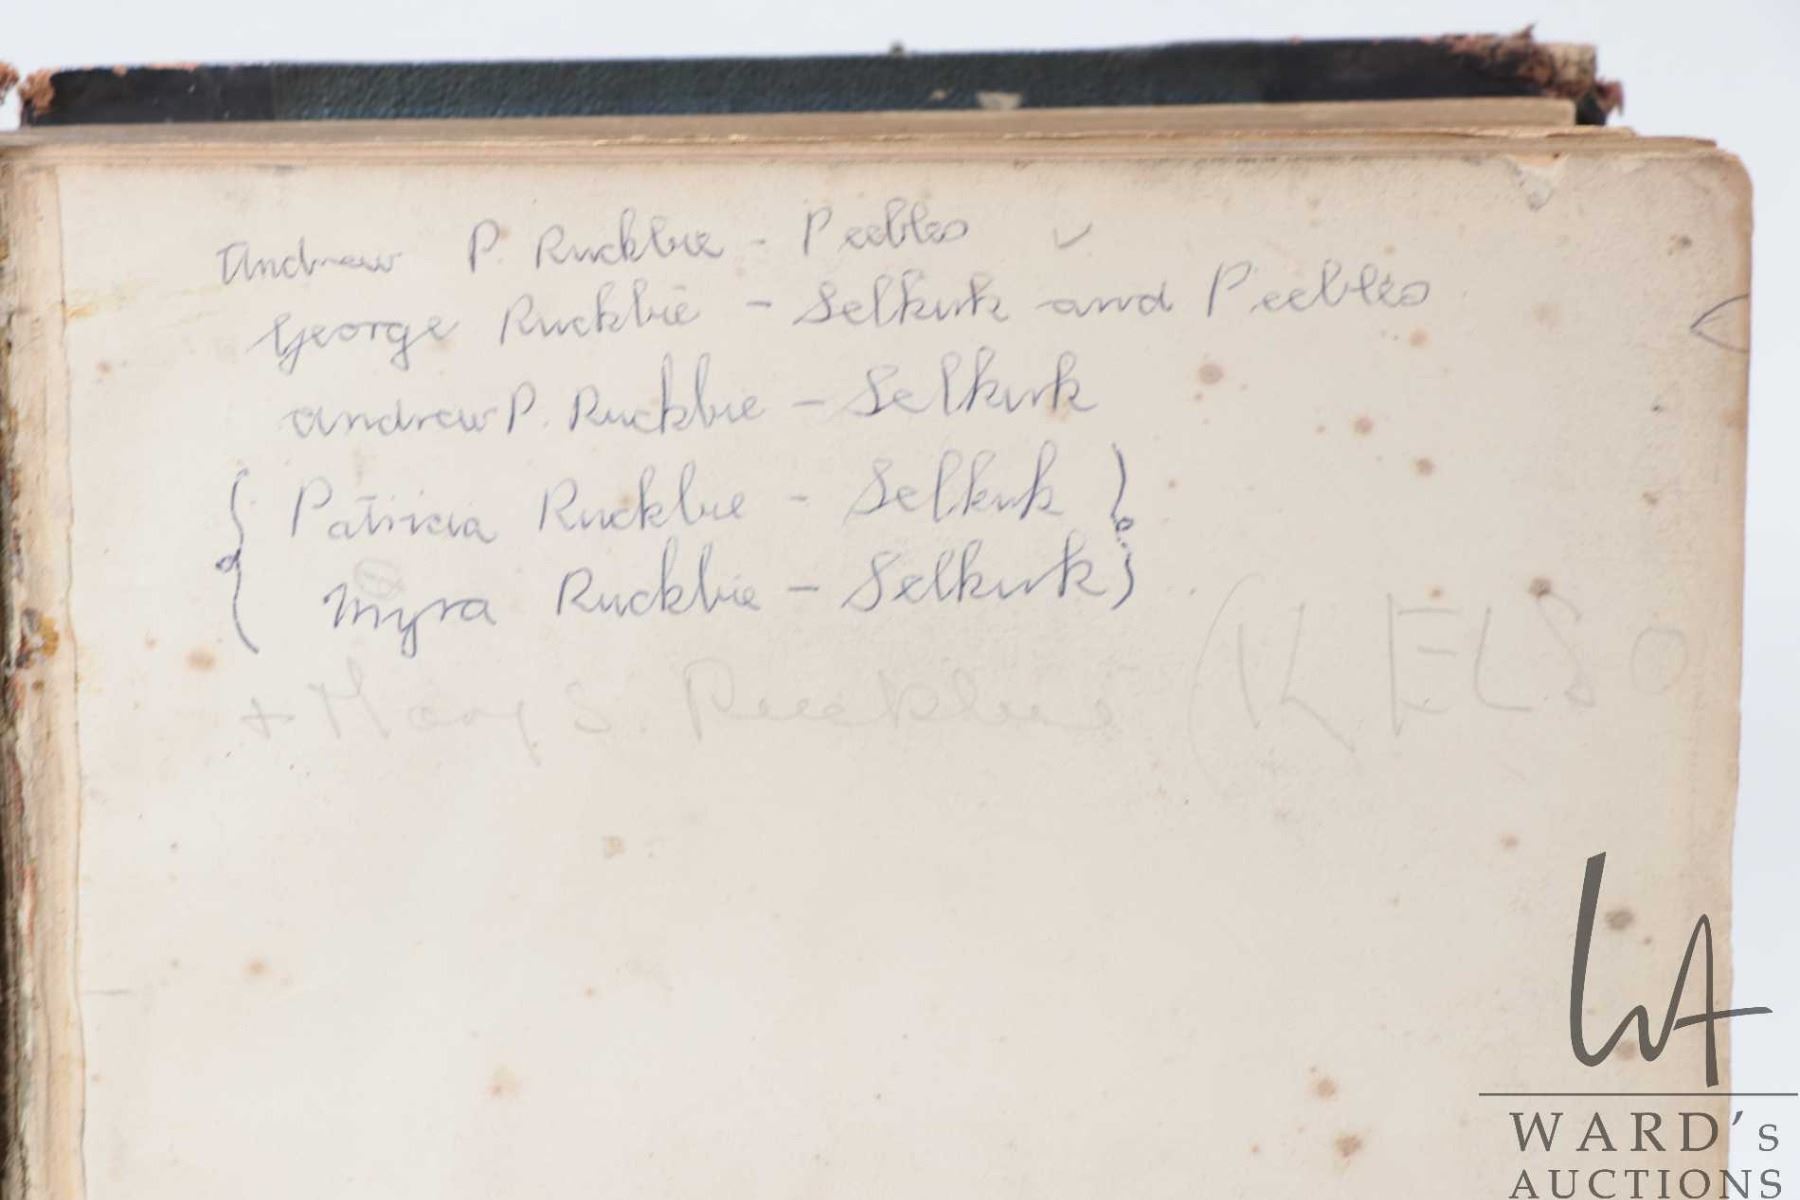 Andrew P. Ruckbie - Peebles ✓
George Ruckbie - Selkirk and Peebles
Andrew P. Ruckbie - Selkirk
{ Patricia Ruckbie - Selkirk }
{ Myra Ruckbie - Selkirk }
+ Mary S. Ruckbie (KELSO
WARD's
AUCTIONS